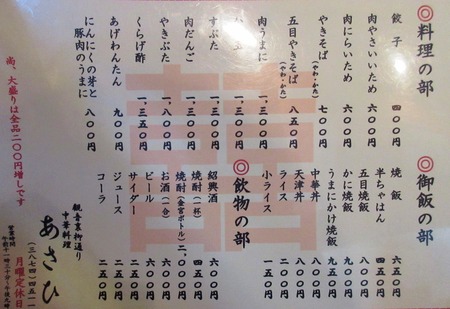 ◎料理の部
餃子 四〇〇円
肉やさいいため 六〇〇円
肉にらいため 六〇〇円
やきそば(やわ・かた) 七〇〇円
五目やきそば(やわ・かた) 八五〇円
肉うまに 一,三〇〇円
玉 一,三〇〇円
すぶた 一,三五〇円
肉だんご 一,三五〇円
やきぶた 一,八〇〇円
くらげ酢 一,三五〇円
あげわんたん 九〇〇円
にんにくの芽と
豚肉のうまに 八〇〇円
尚、大盛りは全品二〇〇円増しです
◎御飯の部
焼飯 六五〇円
半ちゃはん 四五〇円
五目焼飯 八五〇円
かに焼飯 八五〇円
うまにかけ焼飯 八五〇円
中華丼 八五〇円
天津丼 八五〇円
ライス 二〇〇円
小ライス 一五〇円
◎飲物の部
紹興酒 六〇〇円
焼酎(一杯) 四五〇円
焼酎(金宮ボトル) 二,〇〇〇円
お酒(一合) 四〇〇円
ビール 六〇〇円
サイダー 二五〇円
ジュース 二五〇円
コーラ 二五〇円
観音裏柳通り
中華料理
あさひ
(三八七四)四五一一
月曜定休日
営業時間
午前十一時三十分〜午後九時